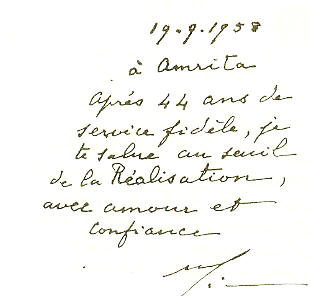 19-9-1958
à Amrita
Après 44 ans de
service fidèle, je
te salue au seuil
de la Réalisation,
avec amour et
confiance